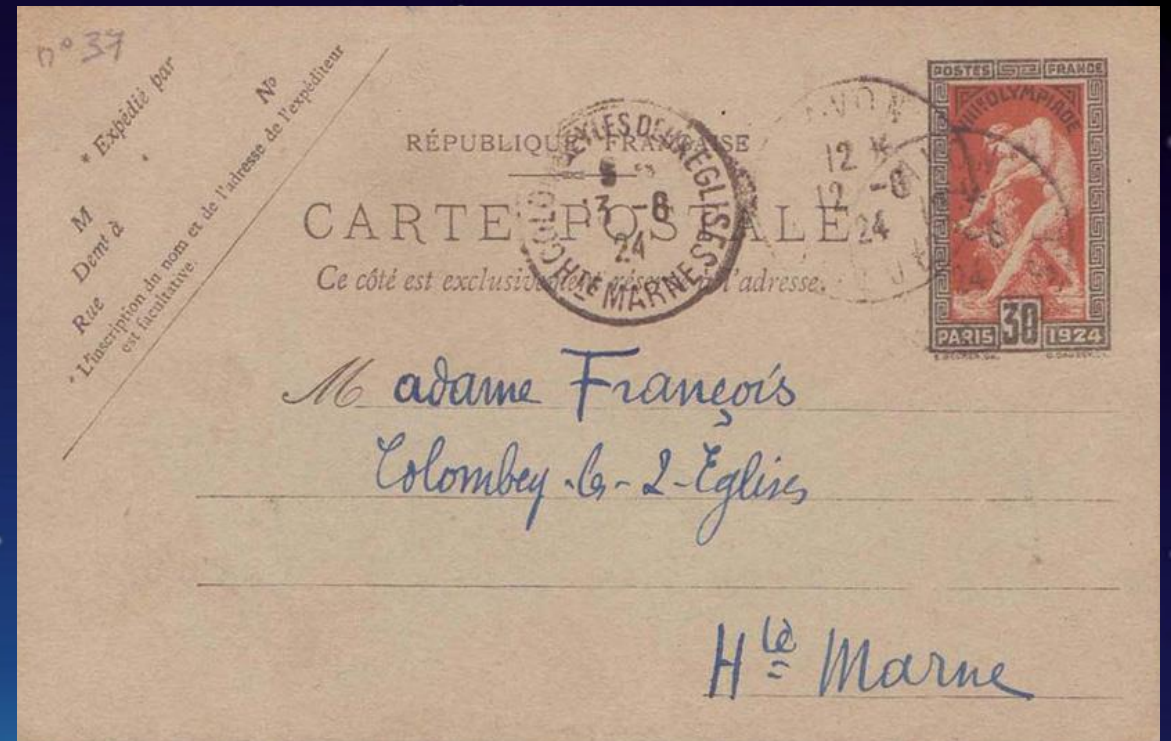 n° 37
* Expédié par
M
N°
Demt à
Rue
* L'inscription du nom et de l'adresse de l'expéditeur
est facultative.
RÉPUBLIQUE FRANÇAISE
CARTE POSTALE
Ce côté est exclusivement réservé à l'adresse.
COLOMBEY LES DEUX EGLISES
13 -8
24
HTE MARNE
12
12 -8
24
POSTES FRANCE
VIIIE OLYMPIADE
PARIS 30 1924
Madame François
Colombey-les-2-Eglises
Hte Marne